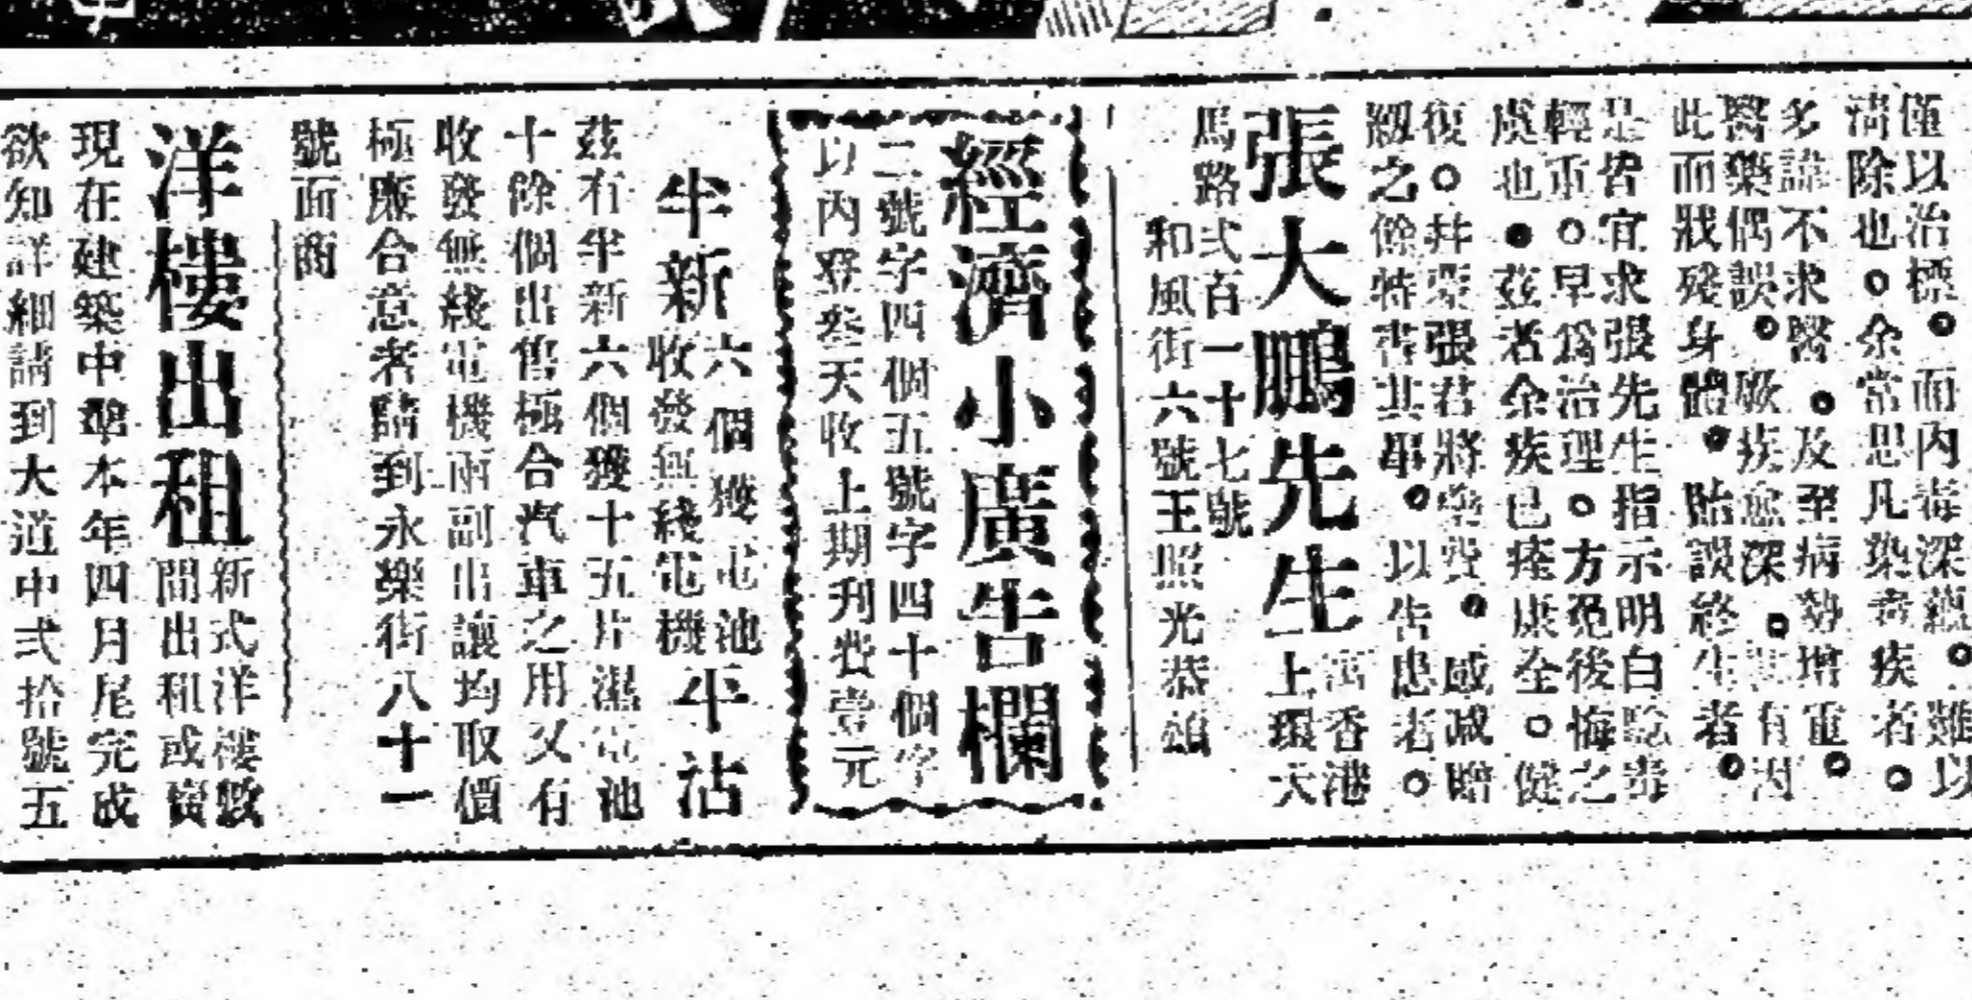 僅以治標。而內毒深藏。難以
清除也。余常思凡染毒疾者。
多諱不求醫。及至病勢增重。
醫藥偶誤。厥疾愈深。甚有因
此而戕殘身體。貽誤終生者。
是皆宜求張先生指示明白
輕重。早為治理。方免後悔之
處也。茲者余疾已痊康全。健
復。并蒙張君將藥費。感減贈
紉之餘特書其事。以告患者。
張大鵬先生
寓香港
上環大
馬路弍百一十七號
和風街六號王照光恭頌
經濟小廣告欄
二號字四個五號字四十個字
以內登叁天收上期刊費壹元
半新六個獲電池
收發無綫電機平沽
茲有半新六個獲十五片濕電池
十餘個出售極合汽車之用又有
收發無綫電機兩副出讓均取價
極廉合意者請到永樂街八十一
號面商
洋樓出租
新式洋樓數
間出租或賣
現在建築中準本年四月尾完成
欲知詳細請到大道中弍拾號五